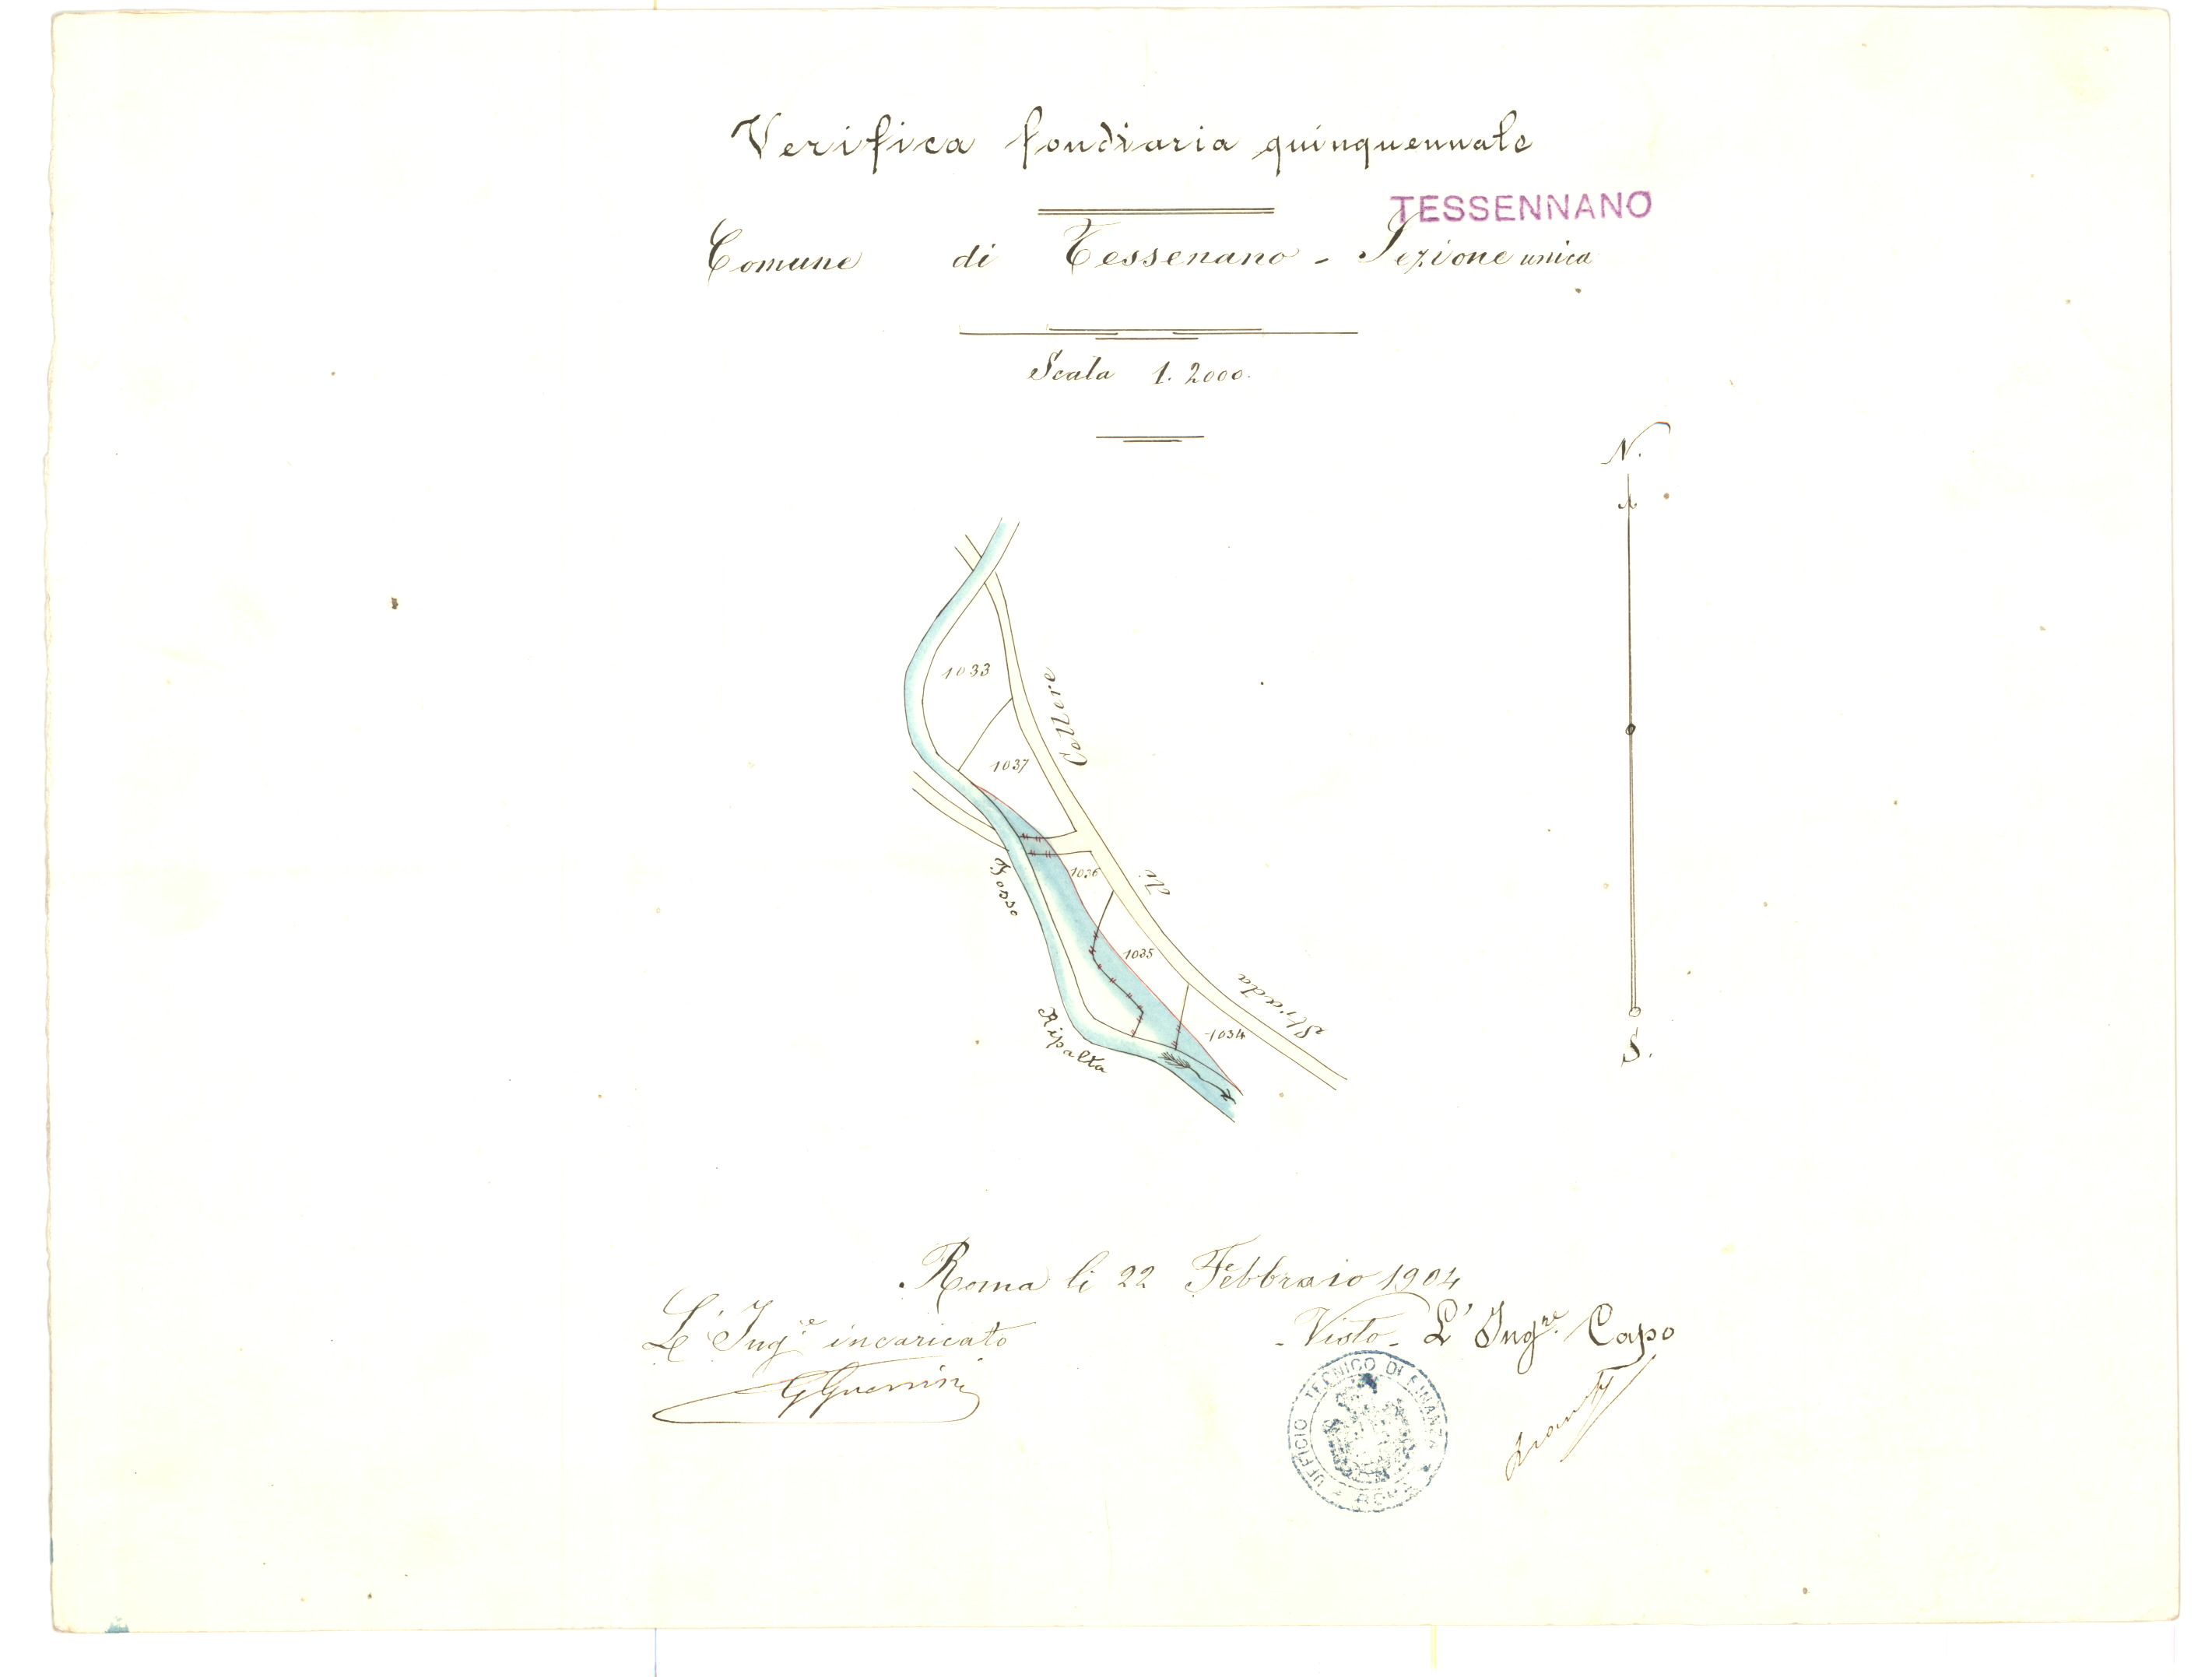 Verifica fondiaria quinquennale
TESSENNANO
Comune di Tessenano - Sezione unica
Scala 1. 2000.
N.
1033
Cellere
1037
1036
di
Fosso
1035
Strada
Ripalta
1034
S.
Roma li 22 Febbraio 1904
L'Ing.e incaricato
GGuerrini
- Visto - L'Ing.re Capo
UFFICIO TECNICO DI FINANZA * ROMA *